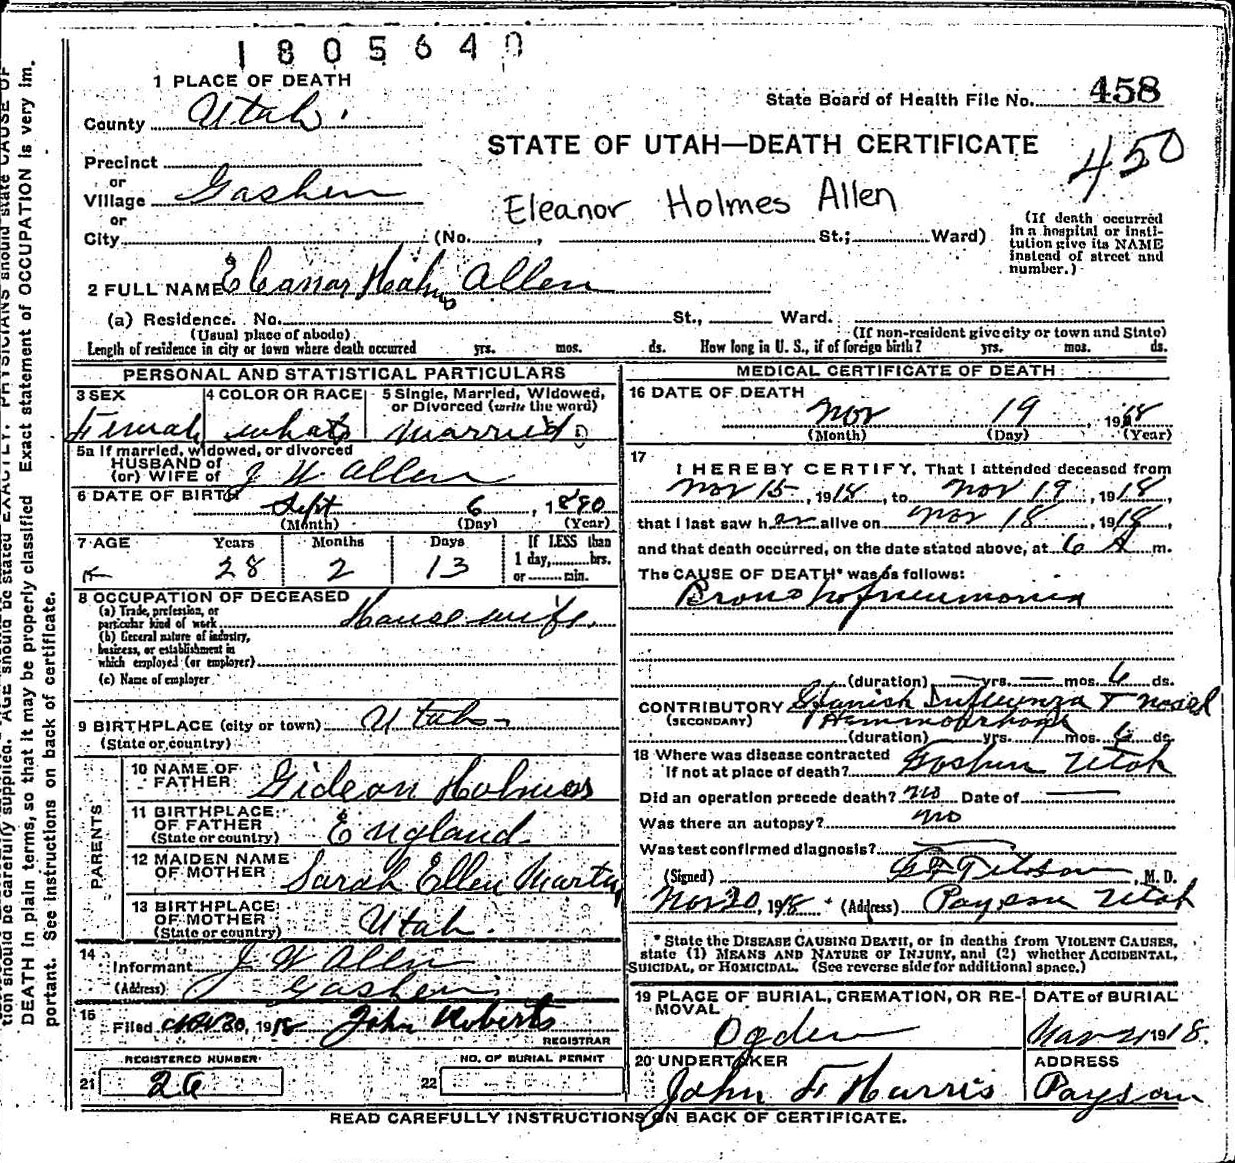 1805640
1 PLACE OF DEATH
County Utah.
State Board of Health File No. 458
STATE OF UTAH—DEATH CERTIFICATE
450
Precinct
or
Village Goshen
or
Eleanor Holmes Allen
City (No. , St.; Ward)
(If death occurred
in a hospital or insti-
tution give its NAME
instead of street and
number.)
2 FULL NAME Eleanor Allen
(a) Residence. No. St., Ward.
(Usual place of abode) (If non-resident give city or town and State)
Length of residence in city or town where death occurred yrs. mos. ds. How long in U. S., if of foreign birth? yrs. mos. ds.
PERSONAL AND STATISTICAL PARTICULARS
3 SEX
Female
4 COLOR OR RACE
white
5 Single, Married, Widowed,
or Divorced (write the word)
Married
5a If married, widowed, or divorced
HUSBAND of
(or) WIFE of J W Allen
6 DATE OF BIRTH
Sept 6, 1890
(Month) (Day) (Year)
7 AGE Years Months Days If LESS than
1 day, hrs.
or min.
28 2 13
8 OCCUPATION OF DECEASED
(a) Trade, profession, or
particular kind of work House wife.
(b) General nature of industry,
business, or establishment in
which employed (or employer)
(c) Name of employer
9 BIRTHPLACE (city or town) Utah
(State or country)
PARENTS
10 NAME OF
FATHER Gideon Holmes
11 BIRTHPLACE
OF FATHER
(State or country) England
12 MAIDEN NAME
OF MOTHER Sarah Ellen Martin
13 BIRTHPLACE
OF MOTHER
(State or country) Utah.
14
Informant J W Allen
(Address) Goshen
15
Filed Nov 20, 1918 John Roberts
REGISTRAR
REGISTERED NUMBER
21 26
NO. OF BURIAL PERMIT
22
MEDICAL CERTIFICATE OF DEATH
16 DATE OF DEATH
Nov 19, 1918
(Month) (Day) (Year)
17
I HEREBY CERTIFY, That I attended deceased from
Nov 15, 1918, to Nov 19, 1918,
that I last saw her alive on Nov 18, 1918,
and that death occurred, on the date stated above, at 6 A m.
The CAUSE OF DEATH* was as follows:
Broncho pneumonia
(duration) — yrs. — mos. 6 ds.
CONTRIBUTORY Spanish Influenza & nasal
(SECONDARY) Hemmorrhage
(duration) yrs. mos. 6 ds.
18 Where was disease contracted
If not at place of death? Goshen Utah
Did an operation precede death? no Date of —
Was there an autopsy? no
Was test confirmed diagnosis? —
(Signed) , M. D.
Nov 20, 1918 (Address) Payson Utah
* State the DISEASE CAUSING DEATH, or in deaths from VIOLENT CAUSES,
state (1) MEANS AND NATURE OF INJURY, and (2) whether ACCIDENTAL,
SUICIDAL, or HOMICIDAL. (See reverse side for additional space.)
19 PLACE OF BURIAL, CREMATION, OR RE-
MOVAL
Ogden
DATE of BURIAL
Nov 21 1918.
20 UNDERTAKER
John F Harris
ADDRESS
Payson
READ CAREFULLY INSTRUCTIONS ON BACK OF CERTIFICATE.
tion should be carefully supplied. AGE should be stated EXACTLY. PHYSICIANS should state CAUSE OF
DEATH in plain terms, so that it may be properly classified. Exact statement of OCCUPATION is very im-
portant. See instructions on back of certificate.